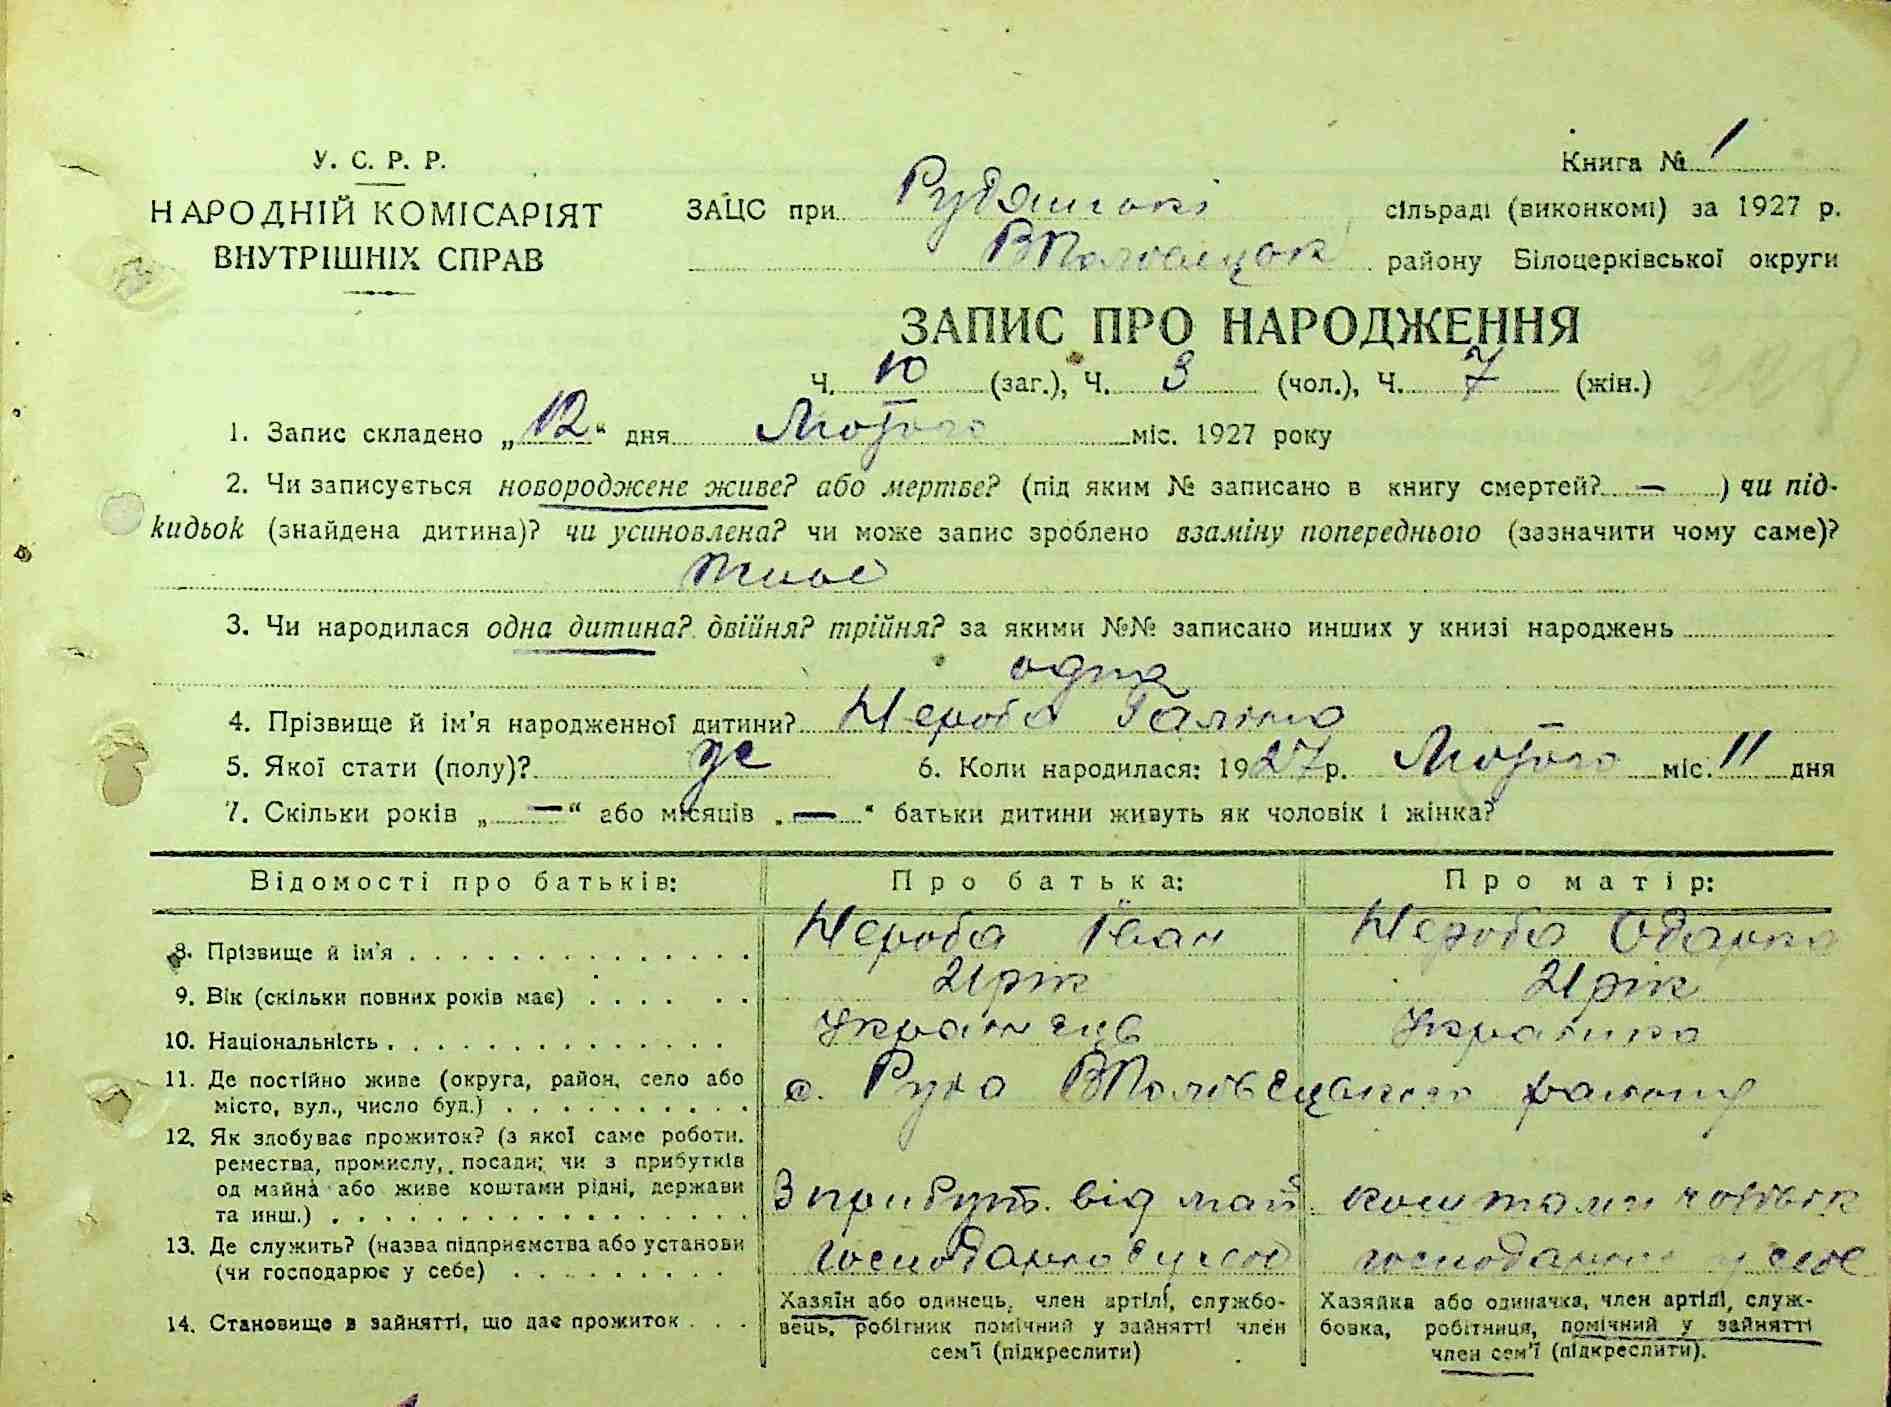 Книга № 1
У. С. Р. Р.
НАРОДНІЙ КОМІСАРІЯТ
ВНУТРІШНІХ СПРАВ
ЗАЦС при Рудянські сільраді (виконкомі) за 1927 р.
району Білоцерківської округи
ЗАПИС ПРО НАРОДЖЕННЯ
Ч. 10 (заг.), Ч. 3 (чол.), Ч. 7 (жін.)
1. Запис складено „12“ дня Лютого міс. 1927 року
2. Чи записується новороджене живе? або мертве? (під яким № записано в книгу смертей? — ) чи під-
кидьок (знайдена дитина)? чи усиновлена? чи може запис зроблено взаміну попереднього (зазначити чому саме)?
живе
3. Чи народилася одна дитина? двійня? трійня? за якими №№ записано инших у книзі народжень
одна
4. Прізвище й ім'я народженної дитини? Нероба Галина
5. Якої стати (полу)? ж 6. Коли народилася: 1927 р. Лютого міс. 11 дня
7. Скільки років „—“ або місяців „—“ батьки дитини живуть як чоловік і жінка?
Відомості про батьків: Про батька: Про матір:
8. Прізвище й ім'я Нероба Іван Нероба Одарка
9. Вік (скільки повних років має) 21 рік 21 рік
10. Національність Українець Українка
11. Де постійно живе (округа, район, село або
місто, вул., число буд.) с. Руда ВПоловецького району
12. Як здобуває прожиток? (з якої саме роботи,
ремества, промислу, посади; чи з прибутків
од майна або живе коштами рідні, держави
та инш.) З прибутк. від май. коштами чоловік
13. Де служить? (назва підприємства або установи
(чи господарює у себе) господарює у себе господарює у себе
14. Становище в зайнятті, що дає прожиток
Хазяїн або одинець, член артілі, службо-
вець, робітник помічний у зайнятті член
сем'ї (підкреслити)
Хазяйка або одиначка, член артілі, служ-
бовка, робітниця, помічний у зайнятті
член сем'ї (підкреслити).